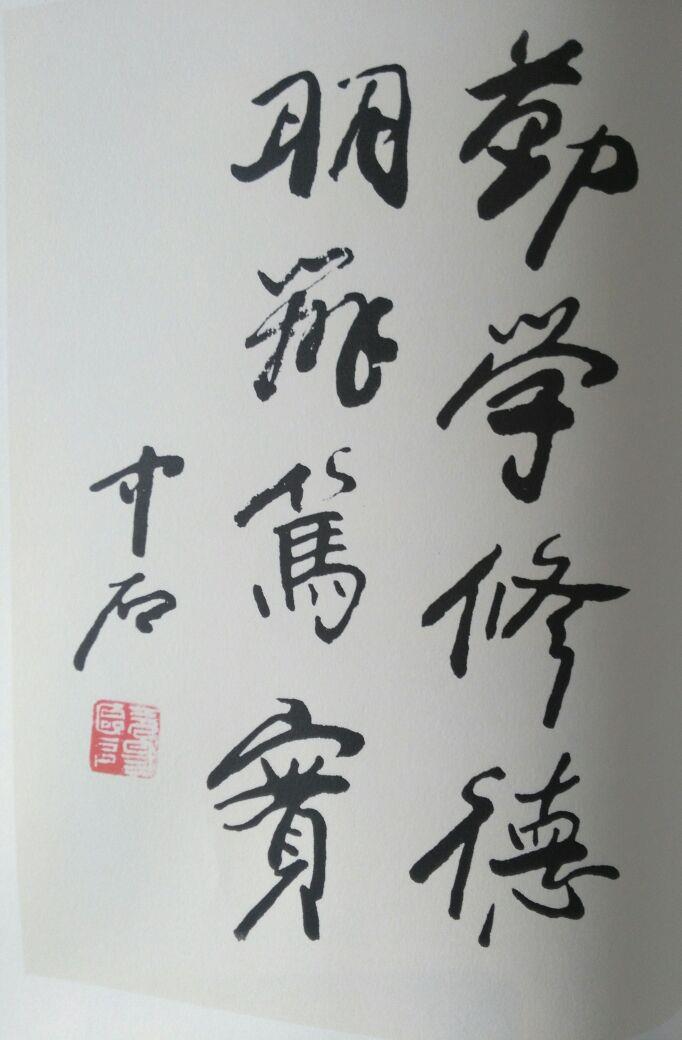 勤学修德
明辨篤實
中石